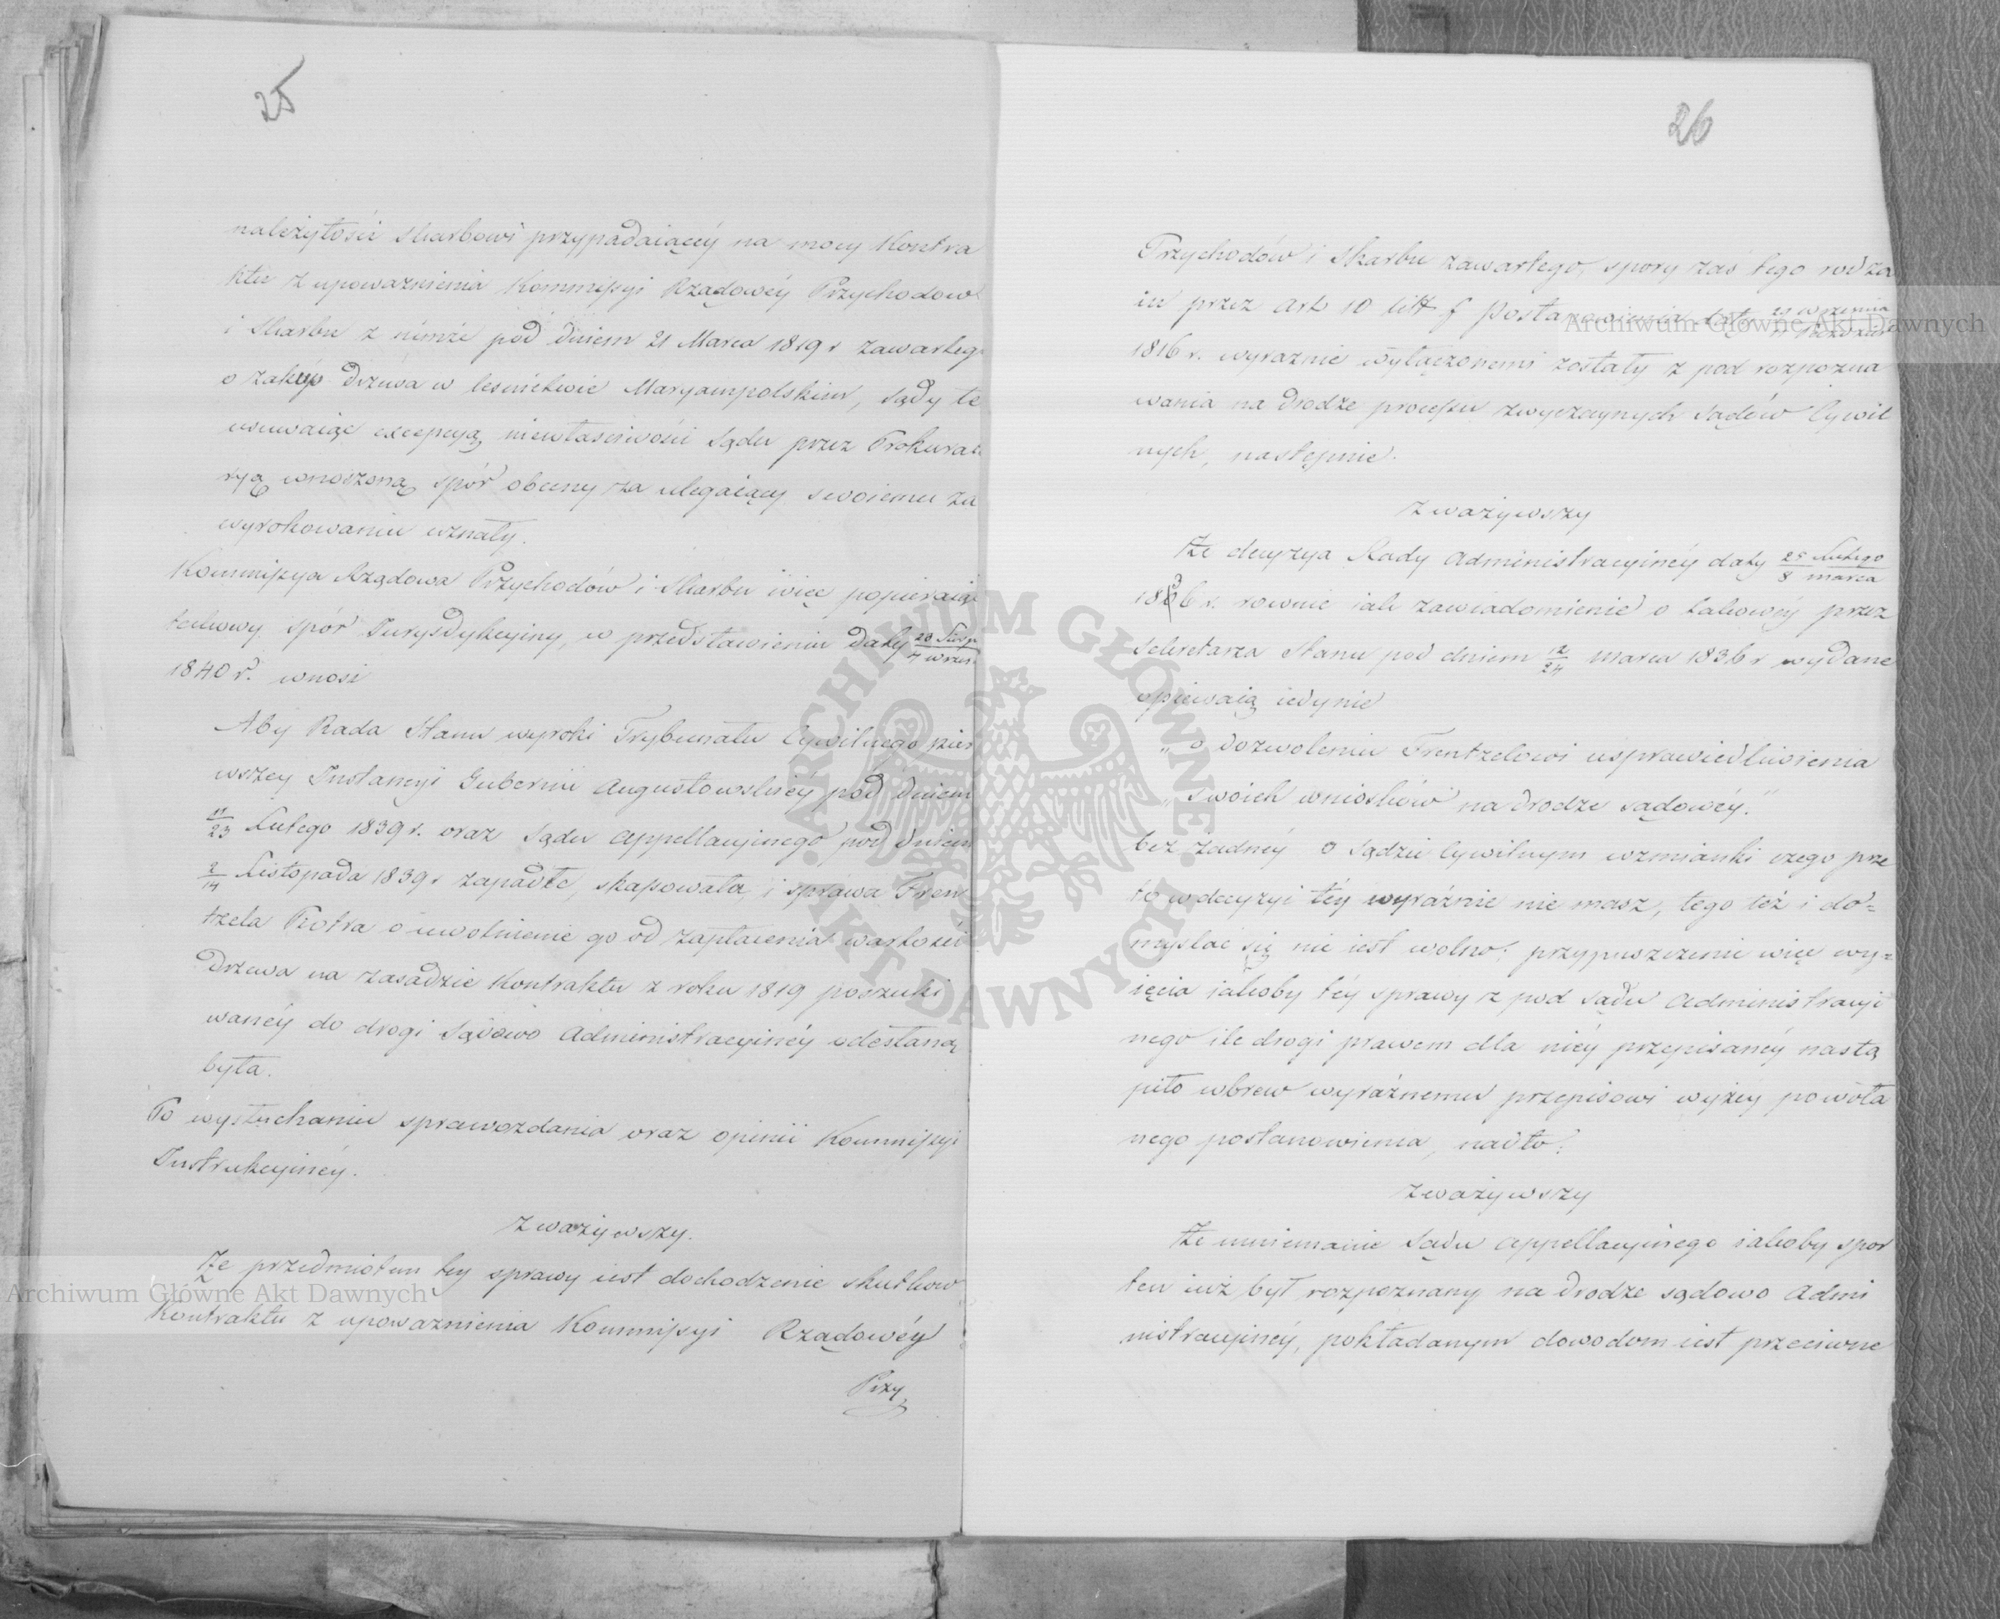 25
należytości Skarbowi przypadaiącéy na mocy Kontra
ktu z upoważnienia Kommissyi Rządowéy Przychodow
i Skarbu z nimże pod dniem 21 Marca 1819 r zawartego
o zakup drzewa w leśnictwie Maryampolskim, Sądy te
usuwaiąc excepcyą niewłaściwości Sądu przez Prokurato
ryą wnoszoną spór obecny za ulegaiący swoiemu za
wyrokowaniu uznały.
Kommissya Rządowa Przychodów i Skarbu więc popieraiąc
takowy spór Jurysdykcyiny, w przedstawieniu daty 23 Sierp / 4 wrześ
1840 r. wnosi
Aby Rada Stanu wyroki Trybunału Cywilnego pier
wszey Instancyi Gubernii Augustowskiéy pod dniem
11/23 Lutego 1839 r. oraz Sądu Appellacyinego pod dniem
2/14 Listopada 1839 r zapadłe, skassowała, i sprawa Fren
tzela Piotra o uwolnienie go od zapłacenia wartości
drzewa na zasadzie Kontraktu z roku 1819 poszuki
wanéy do drogi Sądowo Administracyinéy odesłaną
była.
Po wysłuchaniu sprawozdania oraz opinii Kommissyi
Instrukcyinéy.
Zważywszy.
Że przedmiotem tey sprawy iest dochodzenie skutkow
Kontraktu z upoważnienia Kommissyi Rządowéy
Przy
26
Przychodów i Skarbu zawartego, spory zaś tego rodza
iu przez art 10 litt f Postanowienia daty 29 Września
1816 r. wyraznie wyłączonemi zostały z pod rozpozna
wania na drodze processu zwyczaynych Sądów Cywil
nych, następnie.
Zważywszy
Że decyzya Rady Administracyinéy daty 25 Lutego / 8 marca
1836 r. rownie iak zawiadomienie o takowéy przez
Sekretarza Stanu pod dniem 12/24 Marca 1836 r wydane
opiewaią iedynie
„o dozwoleniu Frentzelowi usprawiedliwienia
„swoich wniosków na drodze sądowéy."
bez żadnéy o Sądzie Cywilnym wzmianki czego prze
to w decyzyi téy wyraźnie nie masz, tego też i do=
myslac się nie iest wolno; przypuszczenie więc wy=
ięcia iakoby téy sprawy z pod Sądu Administracyi
nego i ile drogi prawem dla niéy przepisanéy nastą
piło wbrew wyraźnemu przepisowi wyżey powoła
nego postanowienia, nadto;
Zważywszy
Że mniemanie Sądu Appellacyinego iakoby spor
ten iuż był rozpoznany na drodze sądowo Admi
nistracyinéy, pokładanym dowodom iest przeciwne
Archiwum Główne Akt Dawnych
Archiwum Główne Akt Dawnych
ARCHIWUM GŁÓWNE AKT DAWNYCH